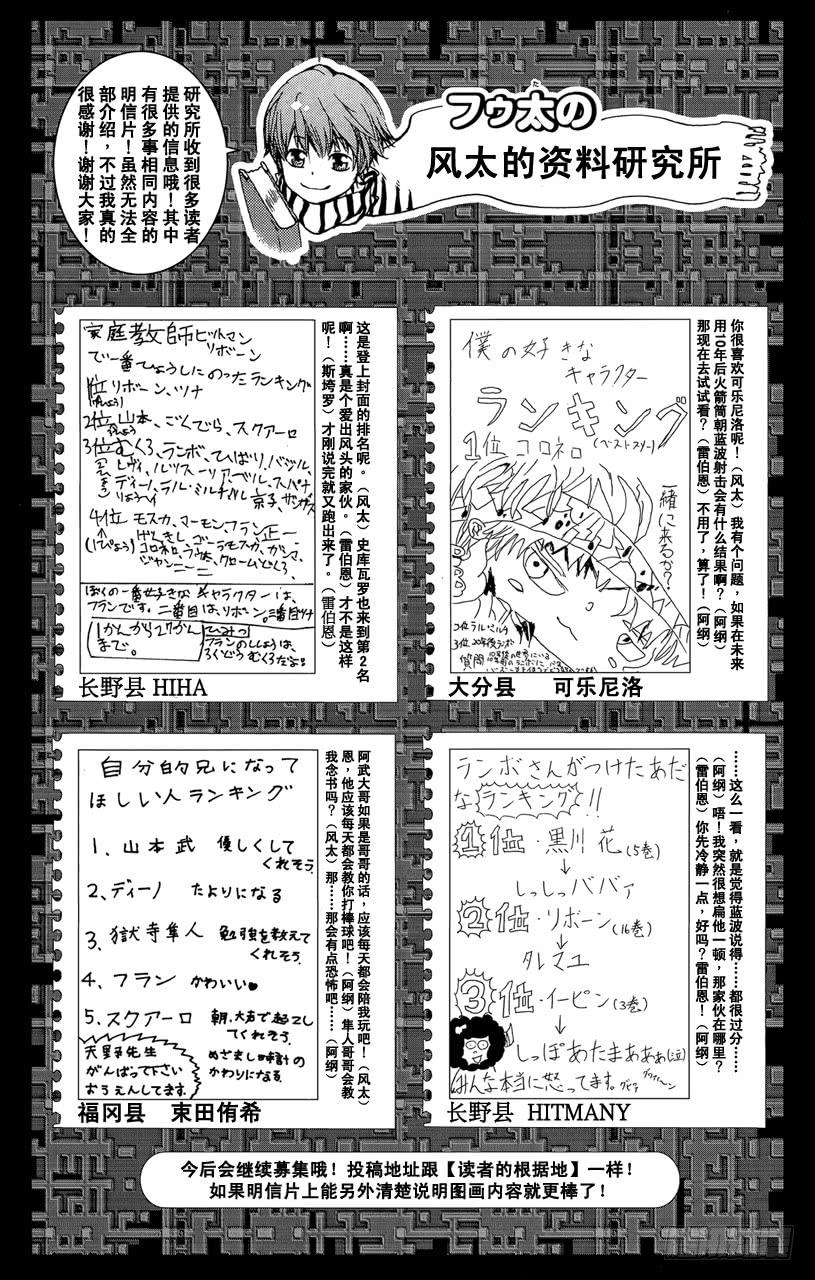 研究所收到很多读者
提供的信息哦！其中
有很多事相同内容的
明信片！虽然无法全
部介绍，不过我真的
很感谢！谢谢大家！
フゥ太の
た
风太的资料研究所
家庭教師ヒットマン
リボーン
で一番ひょうしにのったランキング
1位 リボーン、ツナ
2位 山本、ごくでら、スクアーロ
3位 むくろ、ランボ、ひばり、バジル、
4位 モスカ、マーモン、フラン 正一
ぼくの一番好きなキャラクターは、
フランです。二番目は、リボーン。三番目ツナ
1かんから27かん
まで。
ひみつ
フランのししょうは、
ろくどうむくろだよ!!
这是登上封面的排名呢。（风太）史库瓦罗也来到第2名
啊……真是个爱出风头的家伙。（雷伯恩）才不是这样
呢！（斯垮罗）才刚说完就又跑出来了。（雷伯恩）
长野县 HIHA
僕の好きな
キャラクター
ランキング
1位 コロネロ
(ベストスリー)
一緒に来るか？
2位 ラルミルチ
3位 20年後ランボ
質問
你很喜欢可乐尼洛呢！（风太）我有个问题，如果在未来
用10年后火箭筒朝蓝波射击会有什么结果啊？（阿纲）
那现在去试试看？（雷伯恩）不用了，算了！（阿纲）
大分县 可乐尼洛
自分的兄になって
ほしい人ランキング
1、山本武 優しくして
くれそう。
2、ディーノ たよりになる
3、獄寺隼人 勉強を教えて
くれそう。
4、フラン かわいい♥
5、スクアーロ 朝、大声で起こし
てくれそう。
めざまし時計の
かわりになる。
天野先生
がんばって下さい
おうえんしてます。
阿武大哥如果是哥哥的话，应该每天都会陪我玩吧！（风太）
恩，他应该每天都会教你打棒球吧！（阿纲）隼人哥哥会教
我念书吗？（风太）那……那会有点恐怖吧……（阿纲）
福冈县 束田侑希
ランボさんがつけたあだ
なランキング!!
1位・黒川 花(5巻)
↓
しっしっババァ
2位・リボーン(16巻)
↓
タレマユ
3位・イーピン(3巻)
↓
しっぽあたまあああ(泣)
みんな本当に怒ってます。
……这么一看，就是觉得蓝波说得……都很过分……
（阿纲）唔！我突然很想扁他一顿，那家伙在哪里？
（雷伯恩）你先冷静一点，好吗？雷伯恩！（阿纲）
长野县 HITMANY
今后会继续募集哦！投稿地址跟【读者的根据地】一样！
如果明信片上能另外清楚说明图画内容就更棒了！